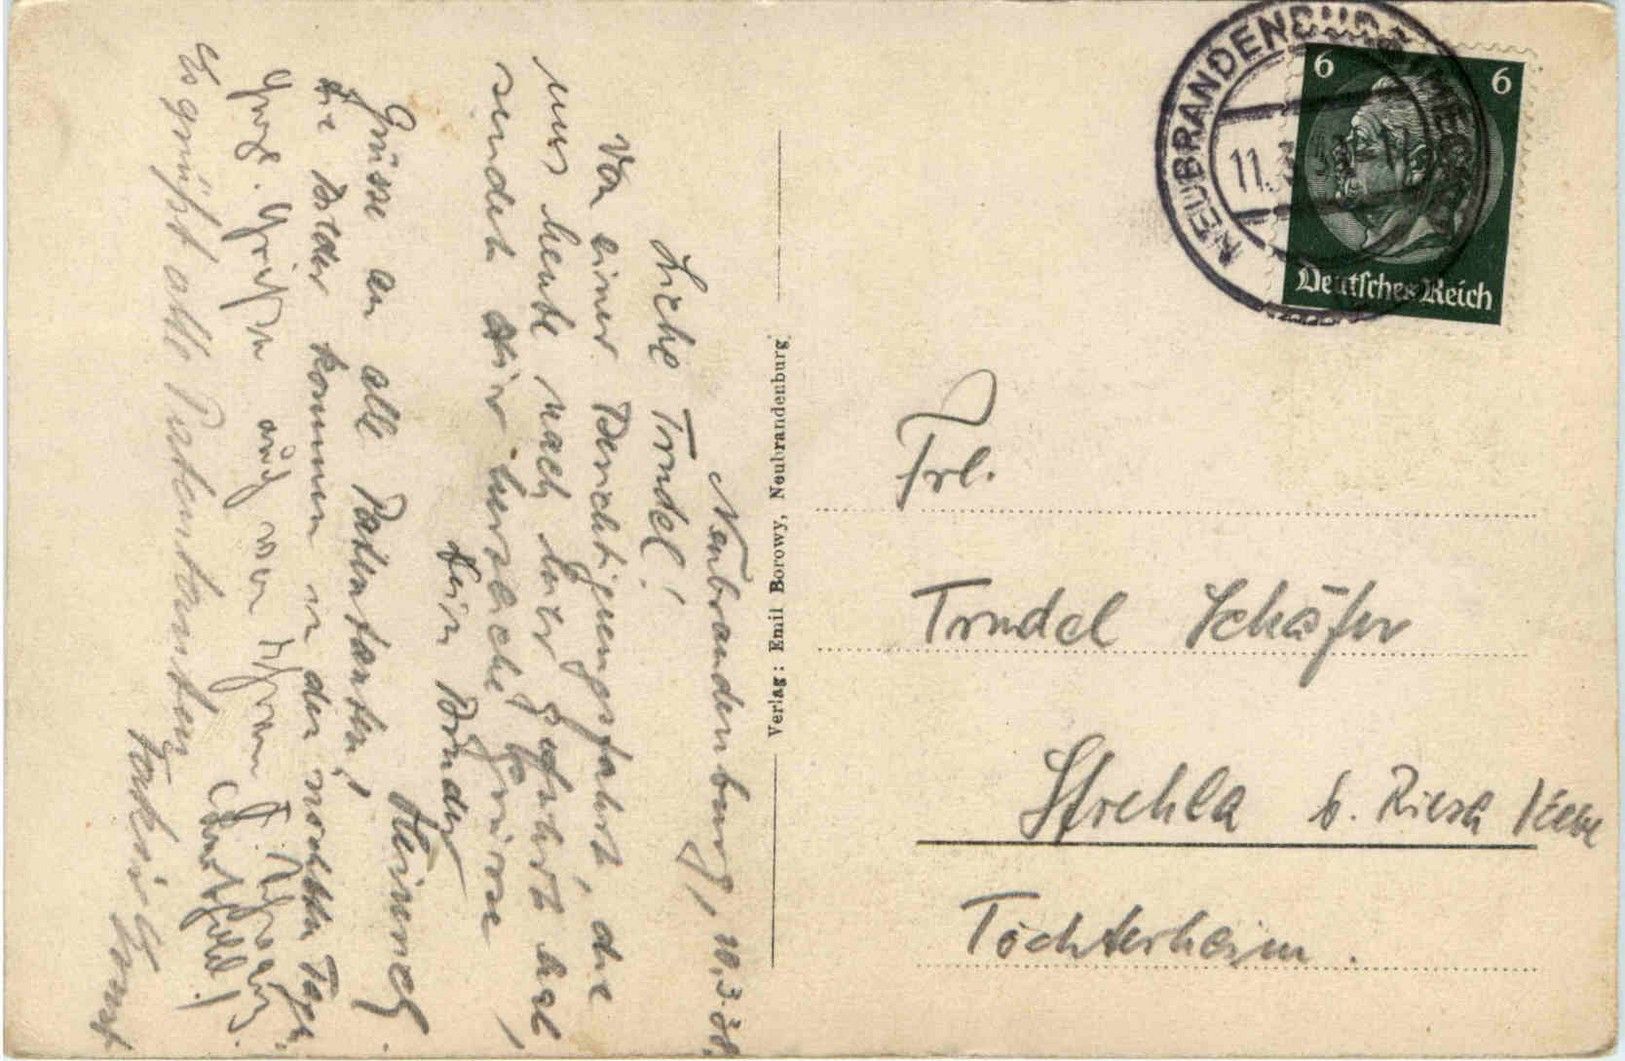 Neubrandenburg, 10.3.38.
Liebe Trudel!
Von einer Besichtigungsfahrt, die
uns heute nach hier geführt hat
sendet dir herzliche Grüsse,
dein Bruder
Heinrich
Grüsse an alle Patentanten!
Die Bilder kommen in den nächsten Tagen.
Grüßen auch von
Es grüßt alle Patentanten
NEUBRANDENBURG (MECKL)
11.3.
6 6
Deutsches Reich
Frl.
Trudel Schäfer
Strehla b. Riesa /Elbe
Töchterheim.
Verlag: Emil Borowy, Neubrandenburg